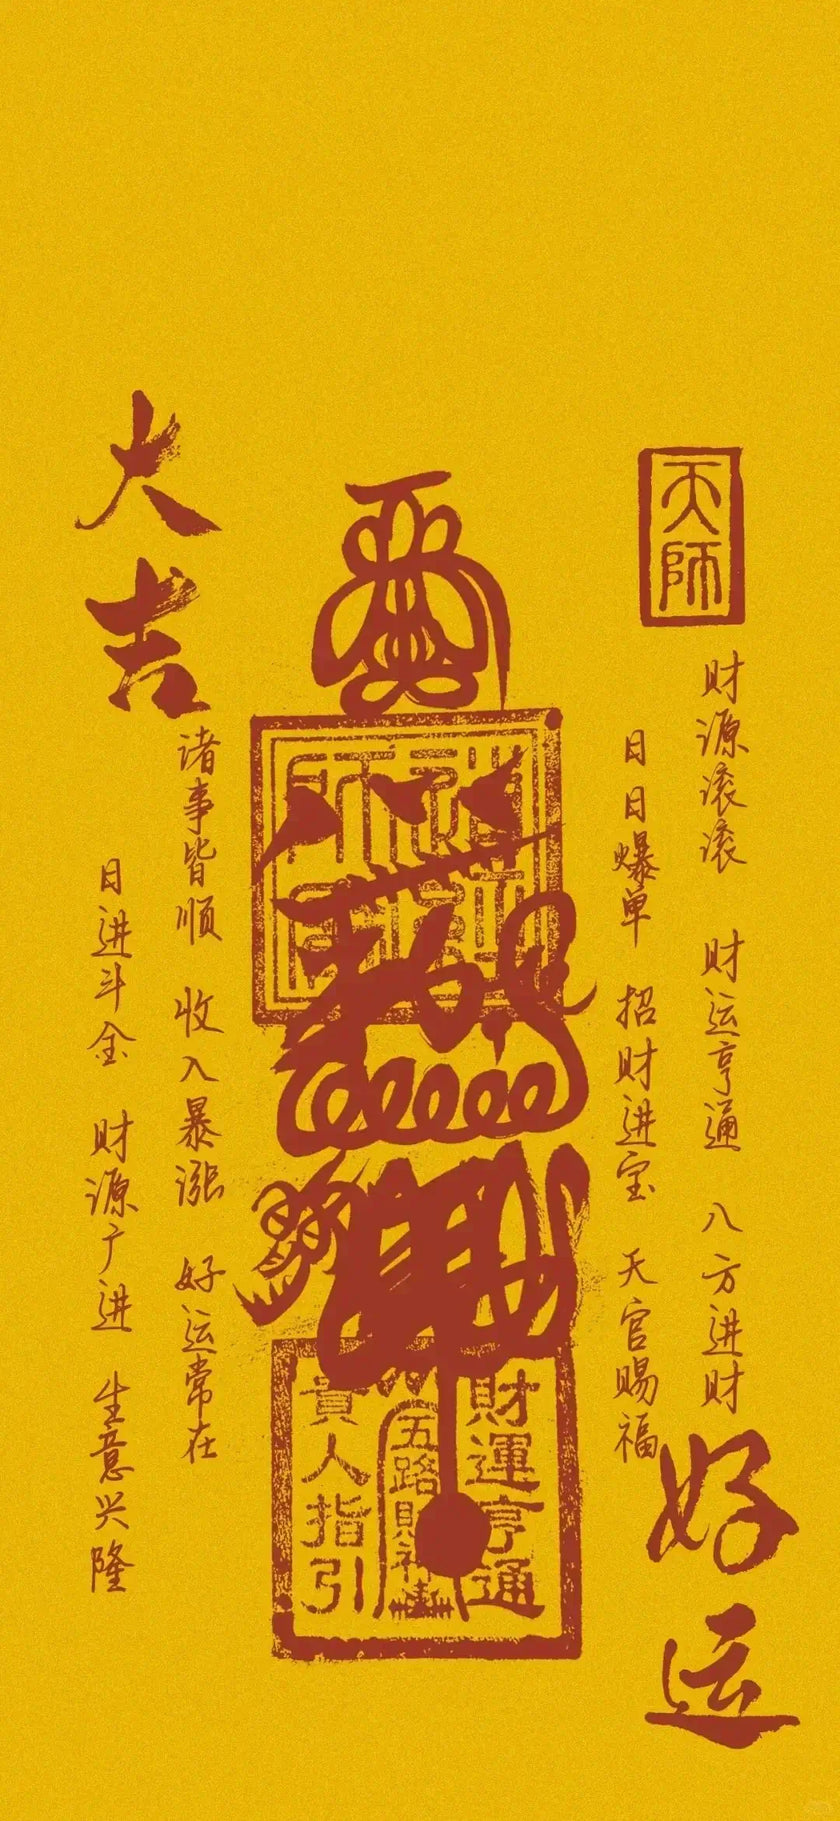 天師
财源滚滚 财运亨通 八方进财
日日爆单 招财进宝 天官赐福
好运
財運亨通
五路財神
貴人指引
大吉
诸事皆顺 收入暴涨 好运常在
日进斗金 财源广进 生意兴隆